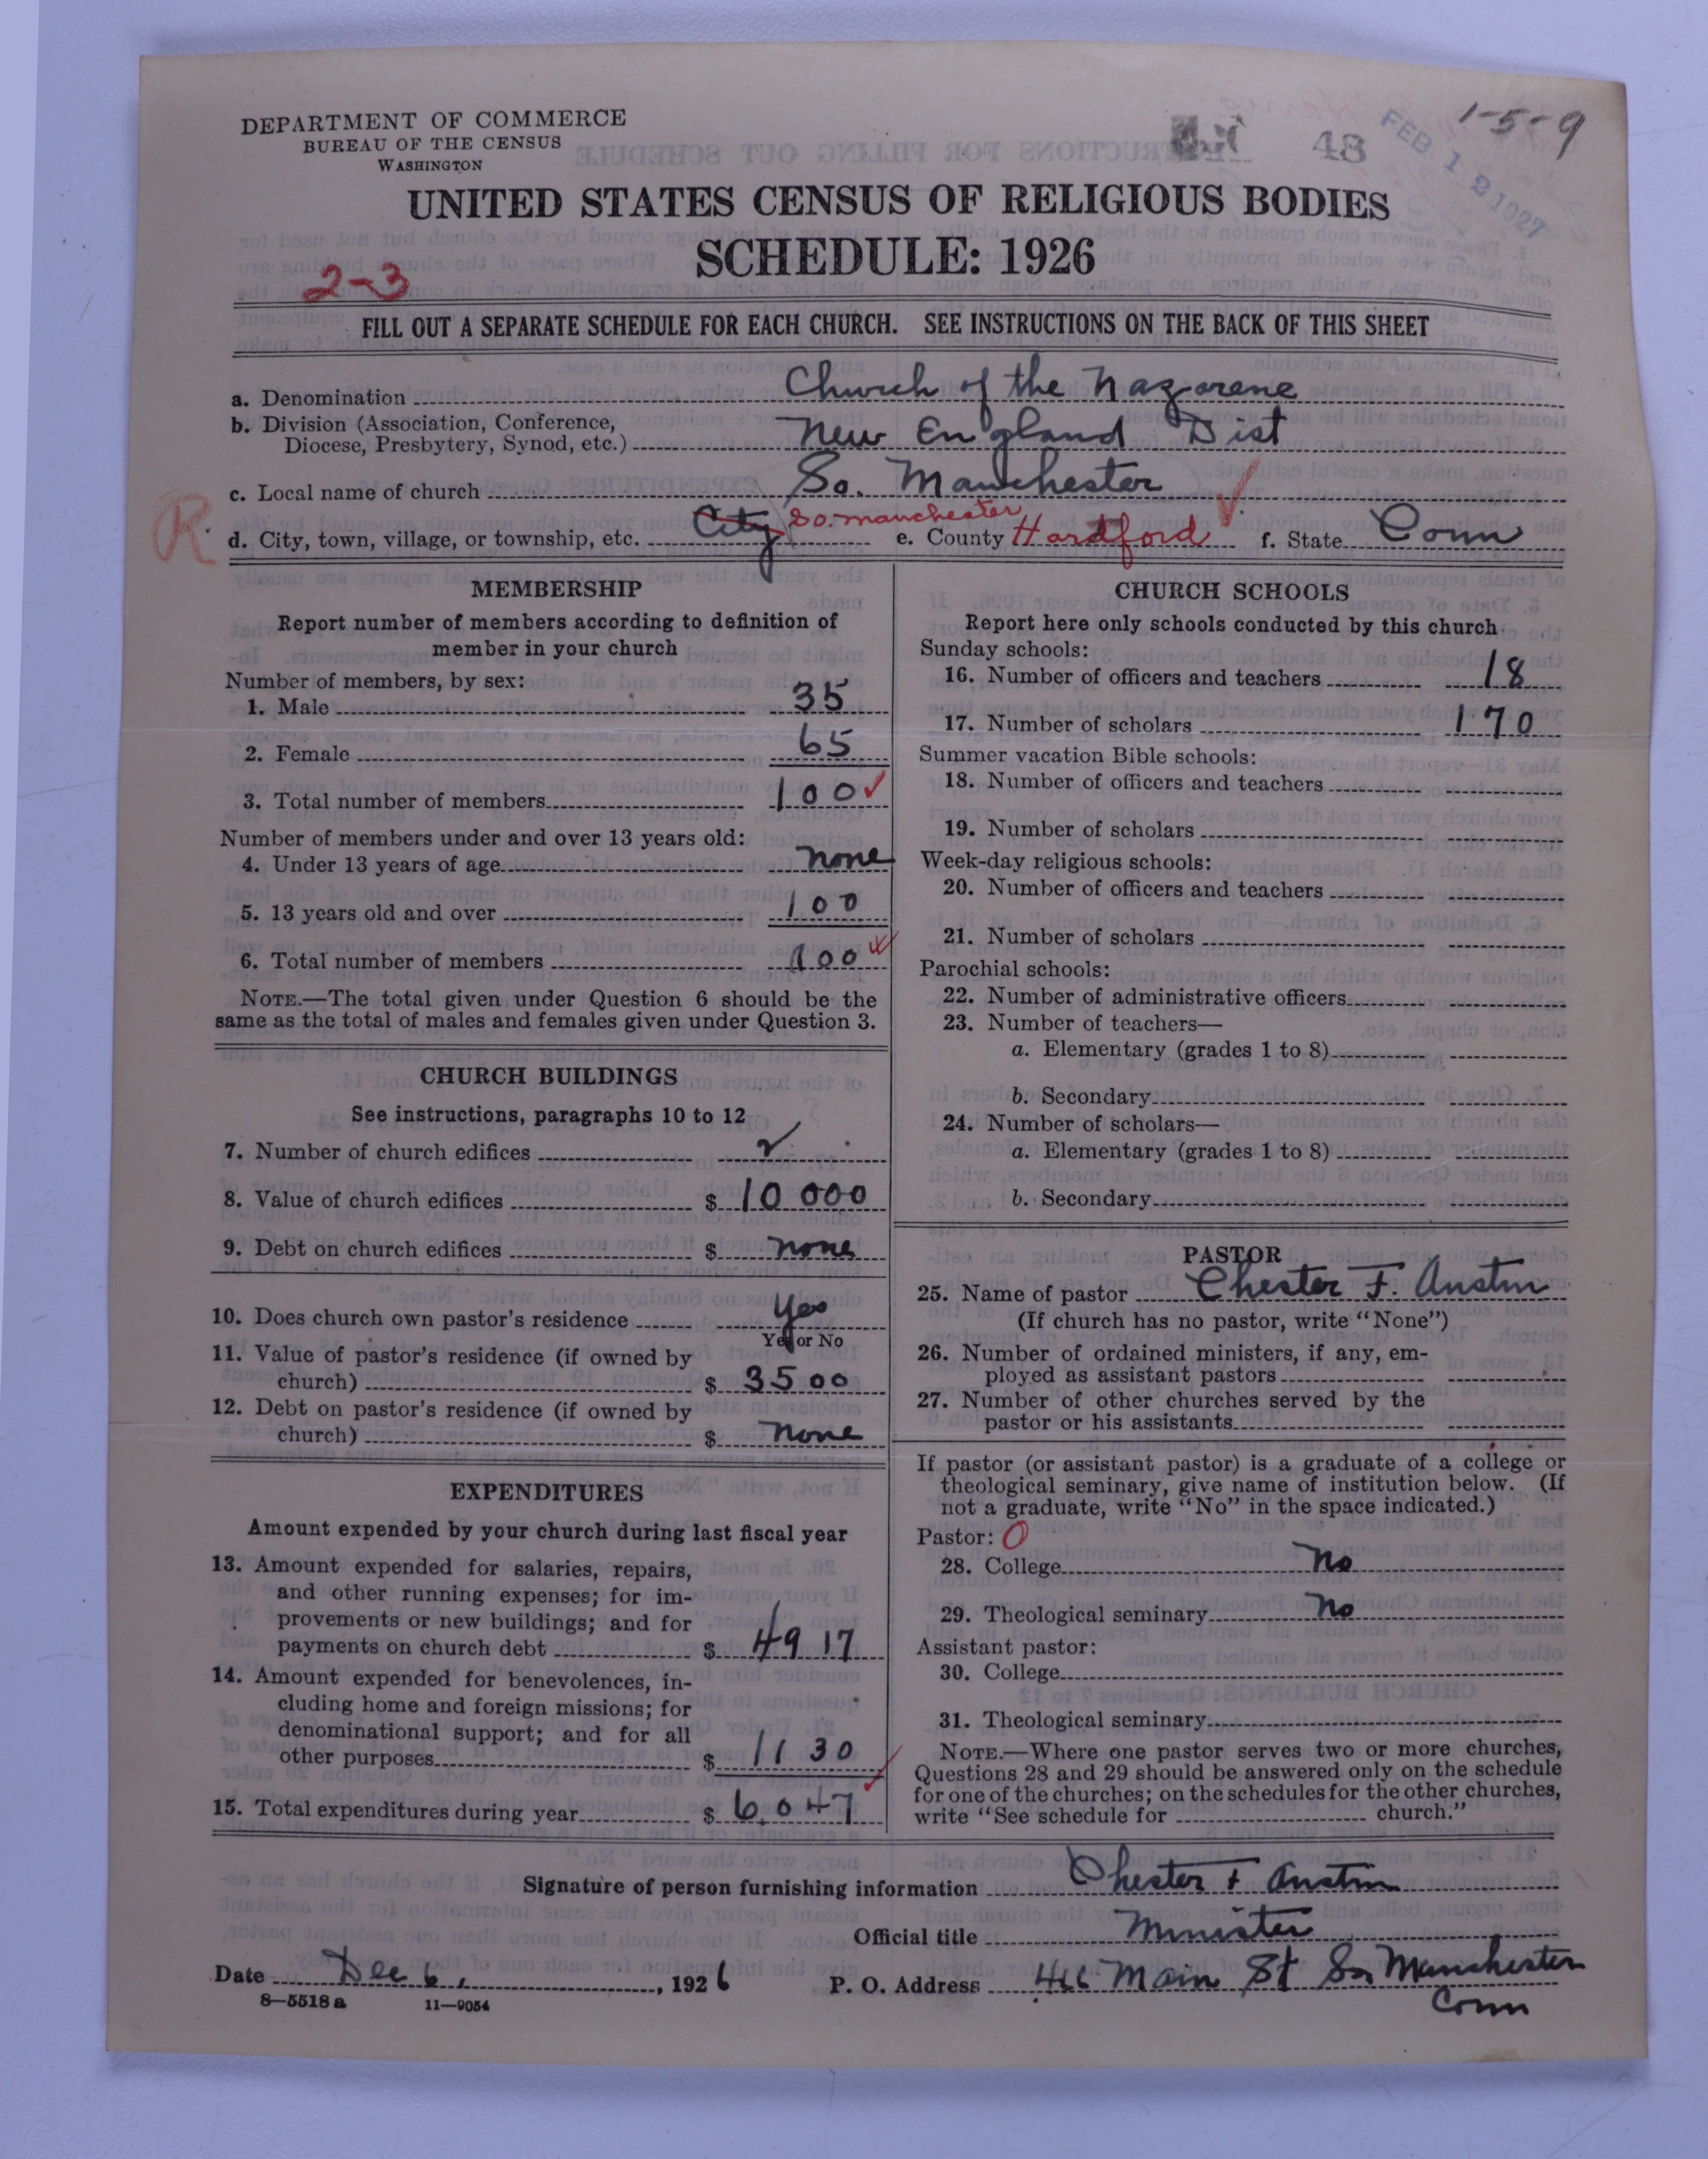 1-5-9
48
FEB 12 1927
DEPARTMENT OF COMMERCE
BUREAU OF THE CENSUS
WASHINGTON
UNITED STATES CENSUS OF RELIGIOUS BODIES
SCHEDULE: 1926
2-3
FILL OUT A SEPARATE SCHEDULE FOR EACH CHURCH. SEE INSTRUCTIONS ON THE BACK OF THIS SHEET
a. Denomination Church of the Nazarene
b. Division (Association, Conference,
Diocese, Presbytery, Synod, etc.) New England Dist
c. Local name of church So. Manchester
R
d. City, town, village, or township, etc. City So. Manchester e. County Hardford f. State Conn
MEMBERSHIP
Report number of members according to definition of
member in your church
Number of members, by sex:
1. Male 35
2. Female 65
3. Total number of members 100
Number of members under and over 13 years old:
4. Under 13 years of age none
5. 13 years old and over 100
6. Total number of members 100
NOTE.—The total given under Question 6 should be the
same as the total of males and females given under Question 3.
CHURCH BUILDINGS
See instructions, paragraphs 10 to 12
7. Number of church edifices
8. Value of church edifices $ 10 000
9. Debt on church edifices $ none
10. Does church own pastor's residence Yes
Yes or No
11. Value of pastor's residence (if owned by
church) $ 3500
12. Debt on pastor's residence (if owned by
church) $ none
EXPENDITURES
Amount expended by your church during last fiscal year
13. Amount expended for salaries, repairs,
and other running expenses; for im-
provements or new buildings; and for
payments on church debt $ 4917
14. Amount expended for benevolences, in-
cluding home and foreign missions; for
denominational support; and for all
other purposes $ 1130
15. Total expenditures during year $ 6047
CHURCH SCHOOLS
Report here only schools conducted by this church
Sunday schools:
16. Number of officers and teachers 18
17. Number of scholars 170
Summer vacation Bible schools:
18. Number of officers and teachers
19. Number of scholars
Week-day religious schools:
20. Number of officers and teachers
21. Number of scholars
Parochial schools:
22. Number of administrative officers
23. Number of teachers—
a. Elementary (grades 1 to 8)
b. Secondary
24. Number of scholars—
a. Elementary (grades 1 to 8)
b. Secondary
PASTOR
25. Name of pastor Chester F. Austin
(If church has no pastor, write "None")
26. Number of ordained ministers, if any, em-
ployed as assistant pastors
27. Number of other churches served by the
pastor or his assistants
If pastor (or assistant pastor) is a graduate of a college or
theological seminary, give name of institution below. (If
not a graduate, write "No" in the space indicated.)
Pastor: O
28. College No
29. Theological seminary No
Assistant pastor:
30. College
31. Theological seminary
NOTE.—Where one pastor serves two or more churches,
Questions 28 and 29 should be answered only on the schedule
for one of the churches; on the schedules for the other churches,
write "See schedule for church."
Signature of person furnishing information Chester F Austin
Official title Minister
Date Dec 6, 1926 P. O. Address 466 Main St So Manchester
Conn
8—5518 a 11—9054